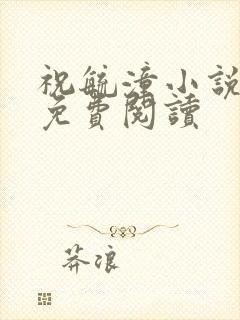 祝毓漳小說
免費閱讀
莽浪